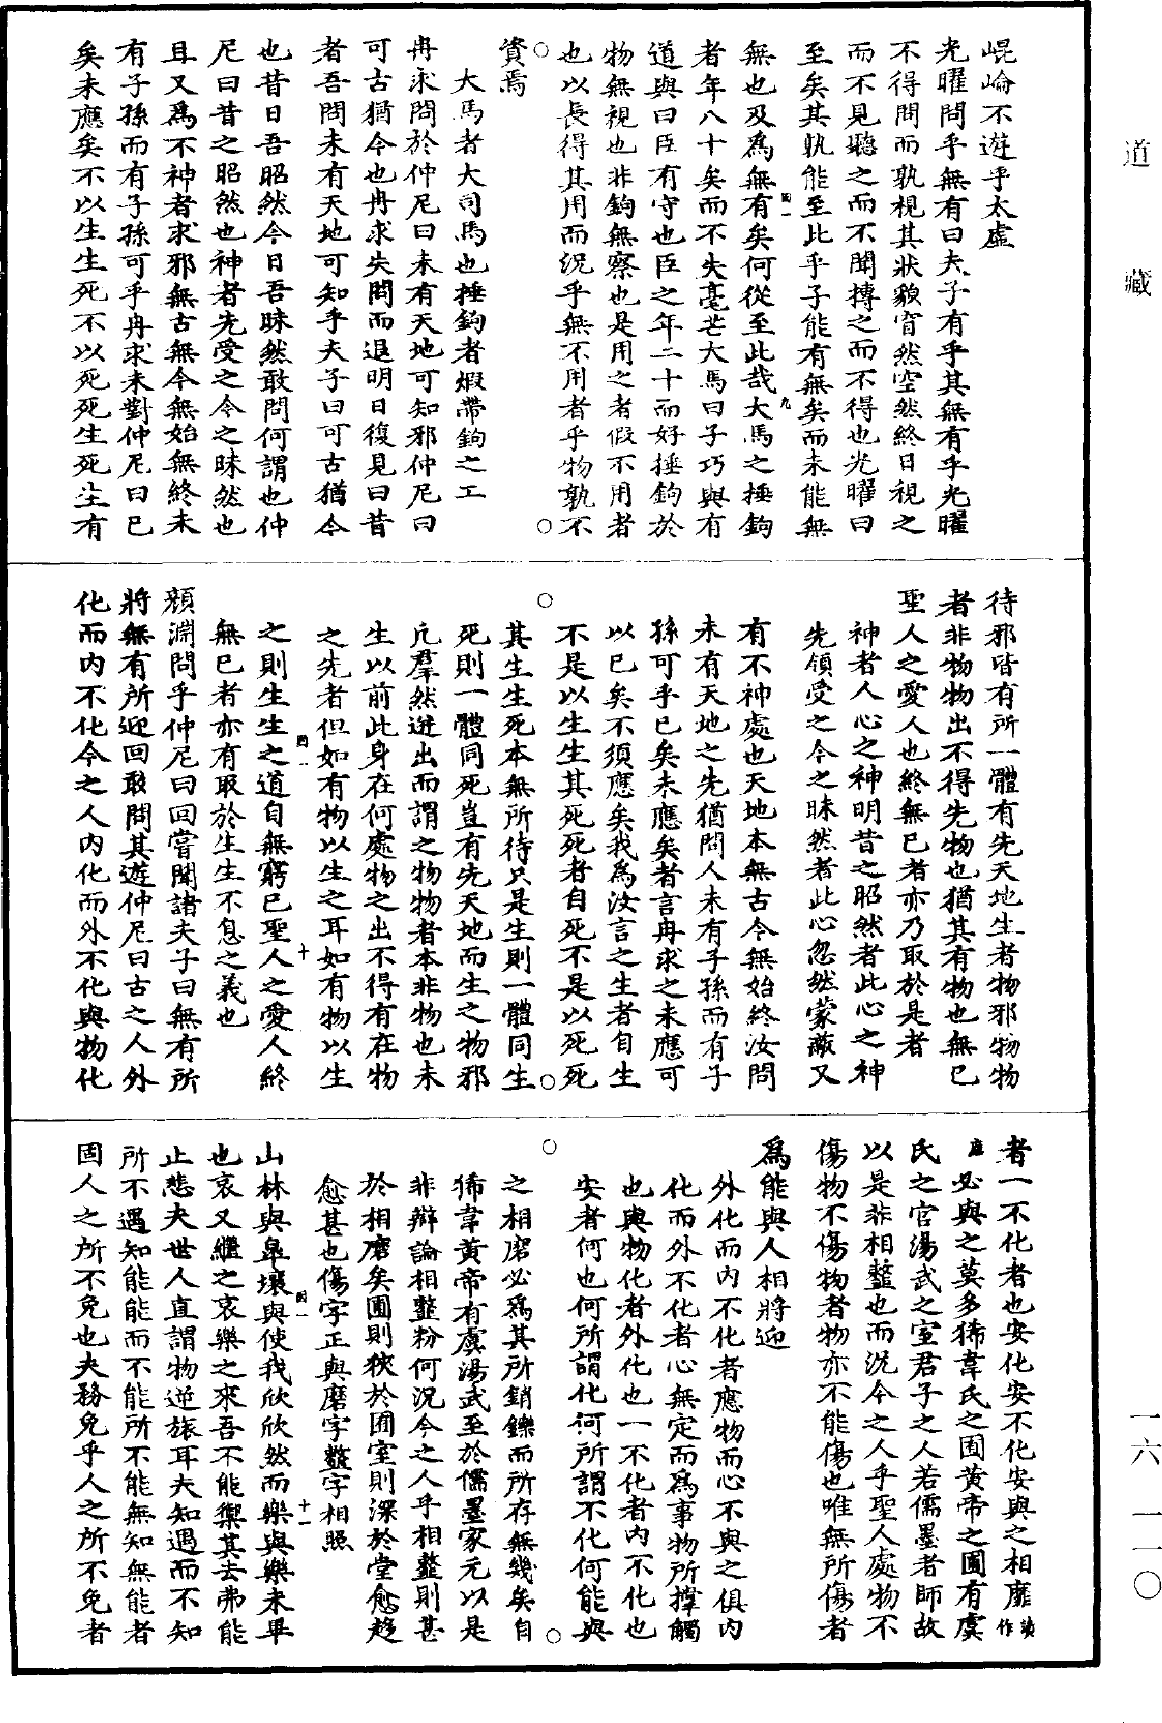 道藏
崐崘不遊乎太虛
光曜問乎無有曰夫子有乎其無有乎光曜
不得問而孰視其狀貌窅然空然終日視之
而不見聽之而不聞摶之而不得也光曜曰
至矣其孰能至此乎子能有無矣而未能無
無也及爲無有矣何從至此哉大馬之捶鉤
者年八十矣而不失毫芒大馬曰子巧與有
道與曰臣有守也臣之年二十而好捶鉤於
物無視也非鉤無察也是用之者假不用者
也以長得其用而況乎無不用者乎物孰不
資焉
大馬者大司馬也捶鉤者煅帶鉤之工
冉求問於仲尼曰未有天地可知邪仲尼曰
可古猶今也冉求失問而退明日復見曰昔
者吾問未有天地可知乎夫子曰可古猶今
也昔日吾昭然今日吾昧然敢問何謂也仲
尼曰昔之昭然也神者先受之今之昧然也
且又爲不神者求邪無古無今無始無終未
有子孫而有子孫可乎冉求未對仲尼曰已
矣未應矣不以生生死不以死死生死生有
待邪皆有所一體有先天地生者物邪物物
者非物物出不得先物也猶其有物也無已
聖人之愛人也終無已者亦乃取於是者
神者人心之神明昔之昭然者此心之神
先領受之今之昧然者此心忽然蒙蔽又
有不神處也天地本無古今無始終汝問
未有天地之先猶問人未有子孫而有子
孫可乎已矣未應矣者言冉求之未應可
以已矣不須應矣我爲汝言之生者自生
不是以生生其死死者自死不是以死死
其生生死本無所待只是生則一體同生
死則一體同死豈有先天地而生之物邪
凢羣然迸出而謂之物物者本非物也未
生以前此身在何處物之出不得有在物
之先者但如有物以生之耳如有物以生
之則生生之道自無窮已聖人之愛人終
無已者亦有取於生生不息之義也
顏淵問乎仲尼曰回嘗聞諸夫子曰無有所
將無有所迎回敢問其遊仲尼曰古之人外
化而内不化今之人内化而外不化與物化
者一不化者也安化安不化安與之相靡讀作
磨必與之莫多狶韋氏之囿黃帝之圃有虞
氏之宮湯武之室君子之人若儒墨者師故
以是非相𩐎也而況今之人乎聖人處物不
傷物不傷物者物亦不能傷也唯無所傷者
爲能與人相將迎
外化而内不化者應物而心不與之俱内
化而外不化者心無定而爲事物所撑觸
也與物化者外化也一不化者内不化也
安者何也何所謂化何所謂不化何能與
之相磨必爲其所銷鑠而所存無幾矣自
狶韋黃帝有虞湯武至於儒墨家元以是
非辯論相𩐎粉何況今之人乎相𩐎則甚
於相磨矣圃則狹於囿室則深於堂愈趨
愈甚也傷字正與磨字𩐎字相照
山林與皐壤與使我欣欣然而樂與樂未畢
也哀又繼之哀樂之來吾不能禦其去弗能
止悲夫世人直謂物逆旅耳夫知遇而不知
所不遇知能能而不能所不能無知無能者
固人之所不免也夫務免乎人之所不免者
一六 一一〇